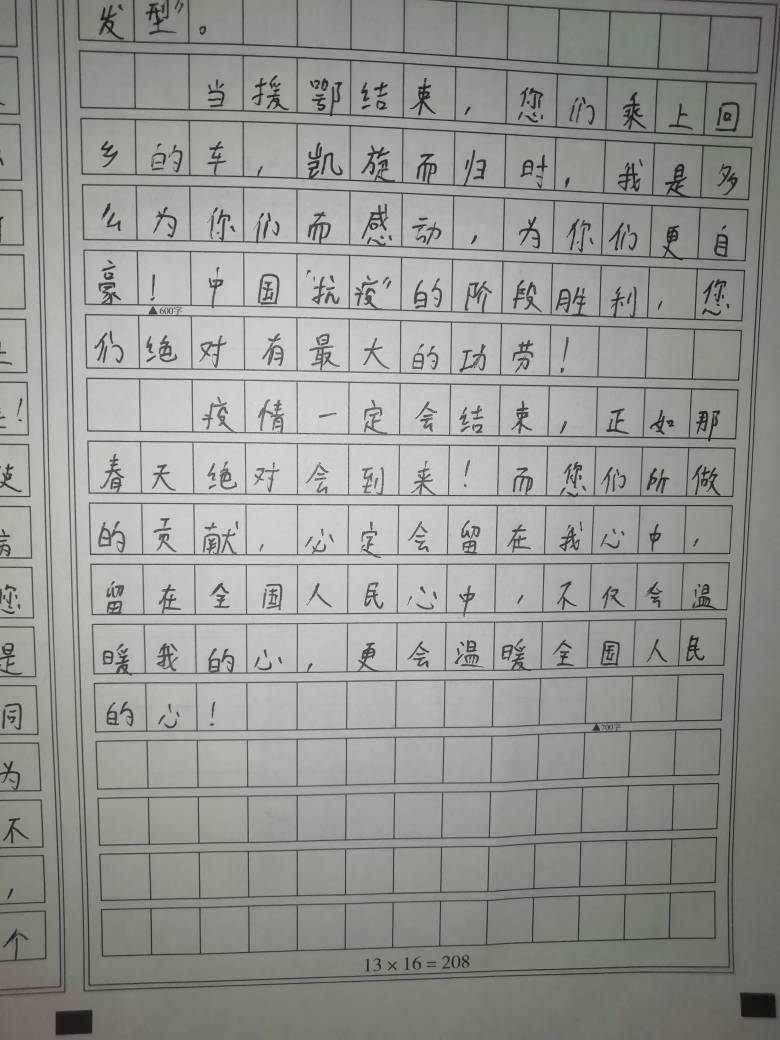 发型”。
当援鄂结束，您们乘上回
乡的车，凯旋而归时，我是多
么为你们而感动，为你们更自
豪！中国“抗疫”的阶段胜利，您
▲600字
们绝对有最大的功劳！
疫情一定会结束，正如那
春天绝对会到来！而您们所做
的贡献，必定会留在我心中，
留在全国人民心中，不仅会温
暖我的心，更会温暖全国人民
的心！
▲700字
13×16=208